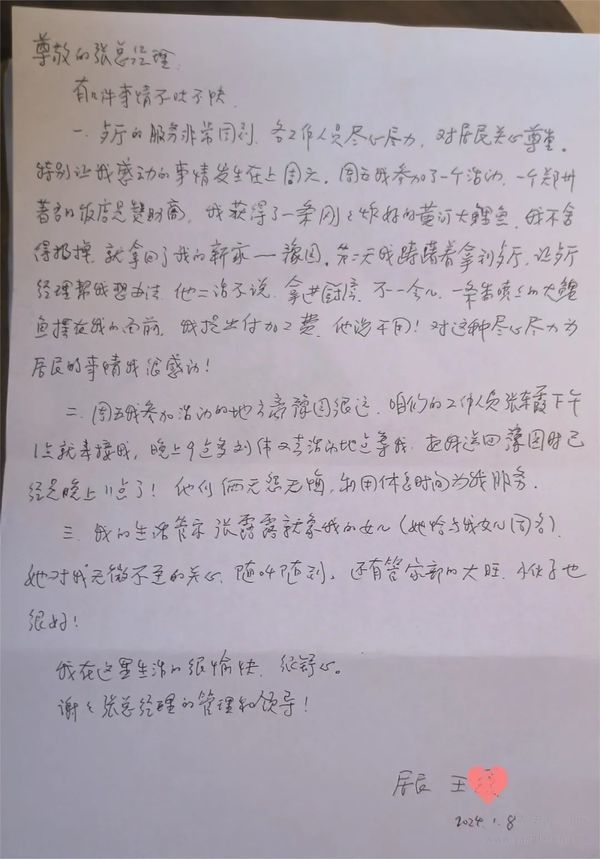 尊敬的张总经理:
有几件事情不吐不快.
一. 歺厅的服务非常周到. 各工作人员尽心尽力, 对居民关心尊重。
特别让我感动的事情发生在上周六. 周五我参加了一个活动, 一个郑州
著名的饭店是赞助商, 我获得了一条刚刚炸好的黄河大鲤鱼, 我不舍
得扔掉, 就拿回了我的新家一豫园. 第二天我踌躇着拿到歺厅, 让歺厅
经理帮我想办法. 他二话不说, 拿进厨房, 不一会儿, 一条香喷喷的大鲤
鱼摆在我的面前. 我提出付加工费, 他说不用! 对这种尽心尽力为
居民的事情我很感动!
二. 周五我参加活动的地方离豫园很远, 咱们的工作人员张东霞下午
1点就奉接我, 晚上9点多刘伟又去活动地点等我. 把我送回豫园时已
经是晚上11点了! 他们俩无怨无悔, 利用休息时间为我服务.
三. 我的生活管家 张露露就象我的女儿 (她恰与我女儿同名).
她对我无微不至的关心, 随叫随到。还有管家部的大旺, 小伙子也
很好!
我在这里生活的很愉快, 很舒心。
谢谢张总经理的管理和领导!
居民 王
2024.1.8